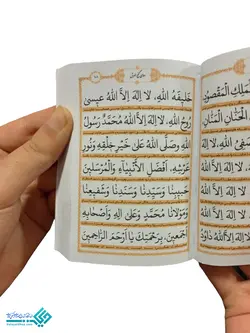 خَلِيفَةُ اللهِ، لَا اِلٰهَ اِلَّا اللهُ عِيسَى
رُوحُ اللهِ، لَا اِلٰهَ اِلَّا اللهُ مُحَمَّدٌ رَسُولُ
اللهِ وَصَلَّى اللهُ عَلَى خَيْرِ خَلْقِهِ وَنُورِ
عَرْشِهِ، اَفْضَلِ الْاَنْبِيَاۤءِ وَالْمُرْسَلِينَ
حَبِيبِنَا وَسَيِّدِنَا وَسَنَدِنَا وَشَفِيعِنَا
وَمَوْلَانَا مُحَمَّدٍ وَعَلَى اٰلِهِ وَاَصْحَابِهِ
اَجْمَعِينَ، بِرَحْمَتِكَ يَا اَرْحَمَ الرَّاحِمِينَ
لْمَلِكِ الْمَقْصُودِ
الْحَنَّانِ الْمَنَّانِ
لَا اِلٰهَ اِلَّا اللهُ
لَا اِلٰهَ اِلَّا اللهُ
اِلَّا اللهُ دَاوُدُ